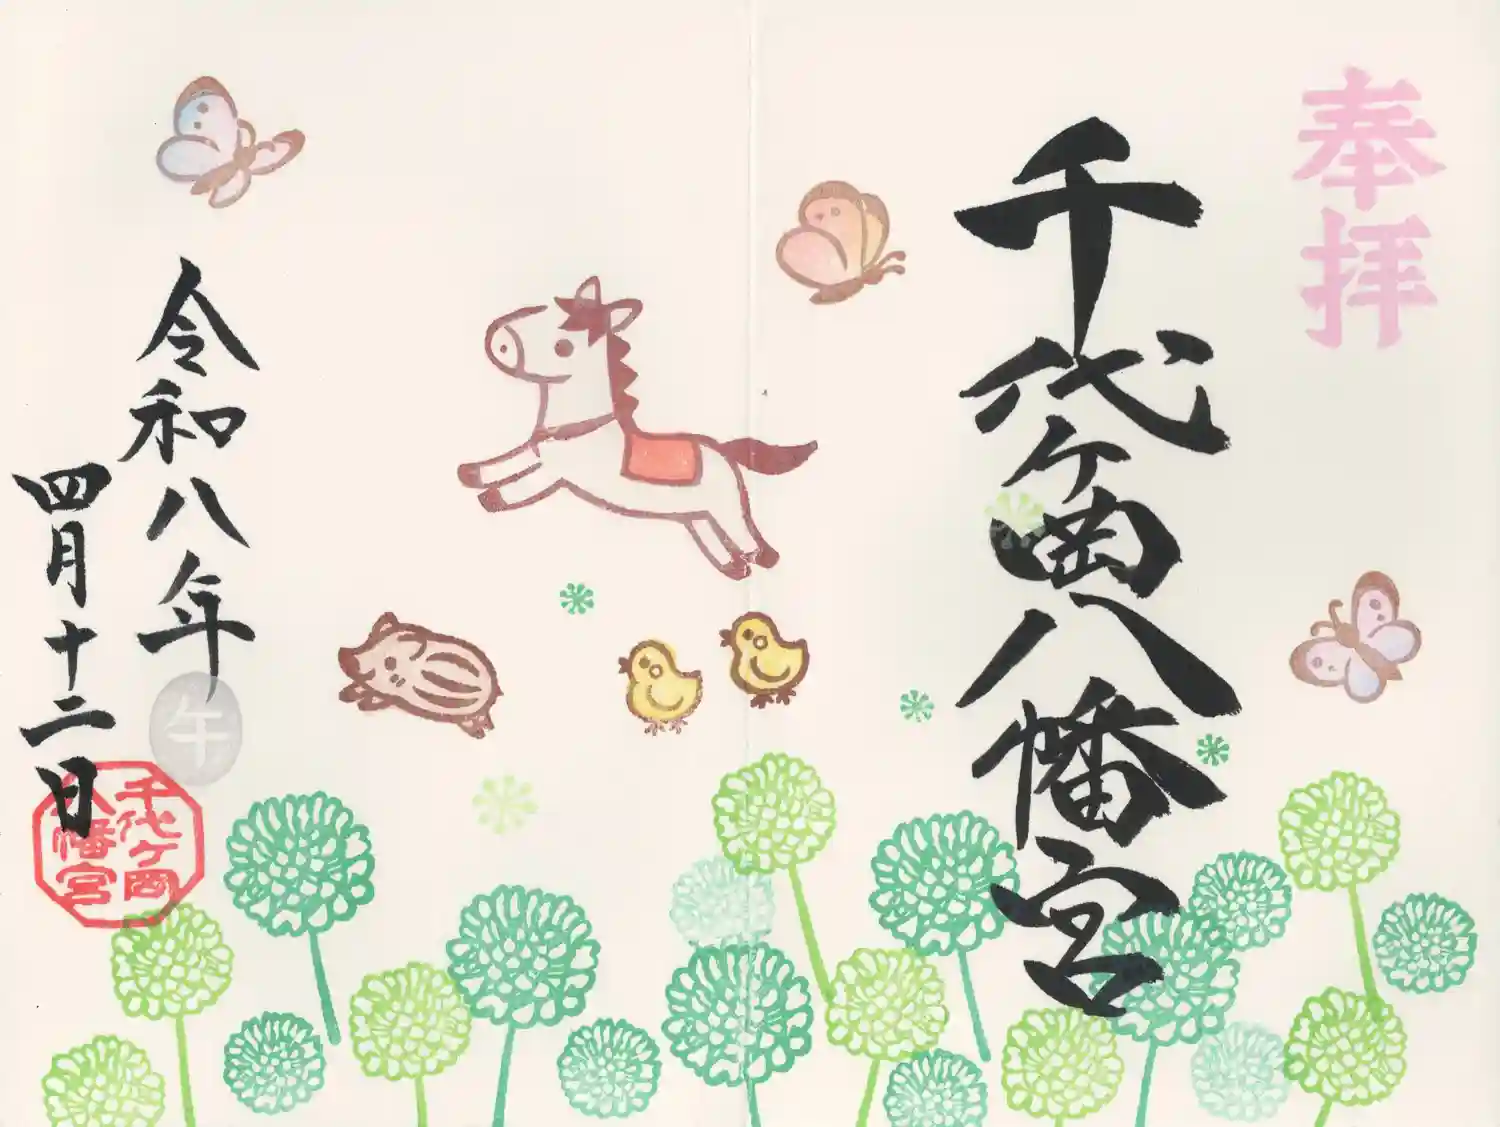 奉拝
千代ヶ岡八幡宮
令和八年
午
四月十二日
千代ヶ岡
八幡宮